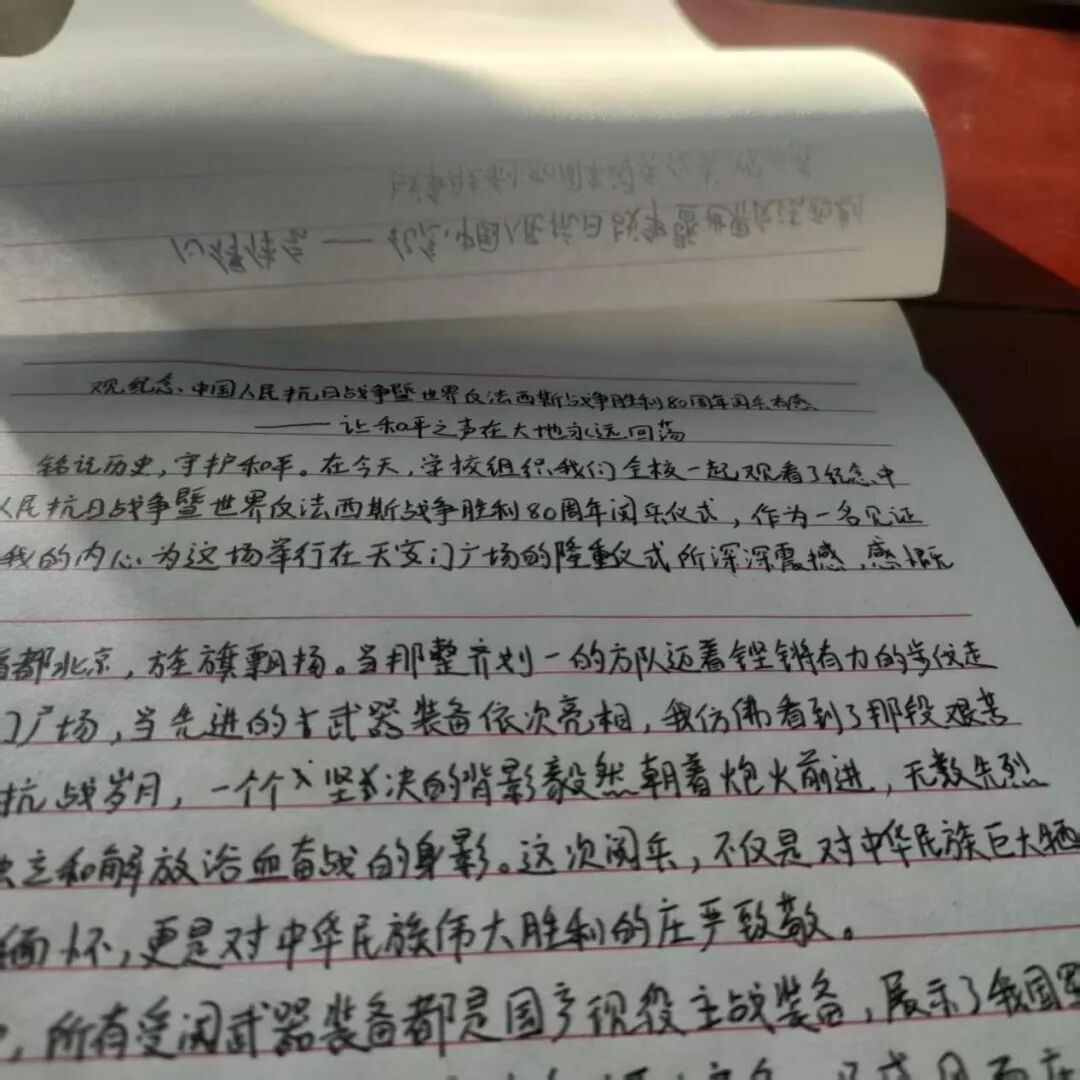 观纪念中国人民抗日战争暨世界反法西斯战争胜利80周年阅兵有感
——让和平之声在大地永远回荡
铭记历史,守护和平。在今天,学校组织我们全校一起观看了纪念中
人民抗日战争暨世界反法西斯战争胜利80周年阅兵仪式,作为一名见证
我的内心为这场举行在天安门广场的隆重仪式所深深震撼,感慨
首都北京,旌旗飘扬。当那整齐划一的方队迈着铿锵有力的步伐走
门广场,当先进的武器装备依次亮相,我仿佛看到了那段艰苦
抗战岁月,一个个坚决的背影毅然朝着炮火前进,无数先烈
独立和解放浴血奋战的身影。这次阅兵,不仅是对中华民族巨大牺
缅怀,更是对中华民族伟大胜利的庄严致敬。
,所有受阅武器装备都是国产现役主战装备,展示了我国军